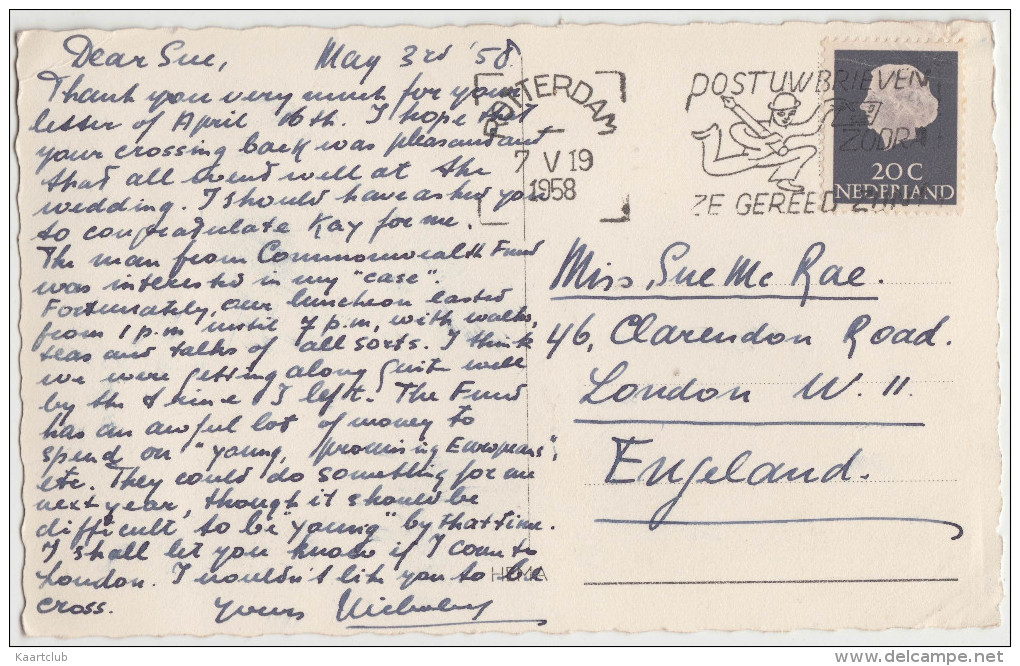 Dear Sue, May 3rd '58
Thank you very much for your
letter of April 16th. I hope that
your crossing back was pleasant and
that all went well at the
wedding. I should have asked you
to congratulate Kay for me.
The man from Commonwealth Fund
was interested in my "case".
Fortunately, our luncheon lasted
from 1 p.m until 7 p.m, with walks,
teas and talks of all sorts. I think
we were getting along quite well
by the time I left. The Fund
has an awful lot of money to
spend on "young, promising Europeans",
etc. They could do something for me
next year, though it should be
difficult to be "young" by that time.
I shall let you know if I come to
London. I wouldn't like you to be
cross. Yours
ROTTERDAM
7 V 19
1958
POST UW BRIEVEN
ZODRA
ZE GEREED ZIJN
20 C
NEDERLAND
Miss, Sue Mc Rae.
46, Clarendon Road.
London W. 11
Engeland.
HEMA
Kaartclub
delcampe.net